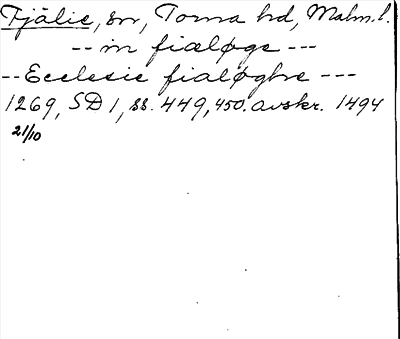 Fjälie, sn, Torna hd, Malm. l.
-- in fiæløge ---
-- Ecclesie fialøghre ---
1269, SD 1, ss. 449, 450. avskr. 1494
21/10